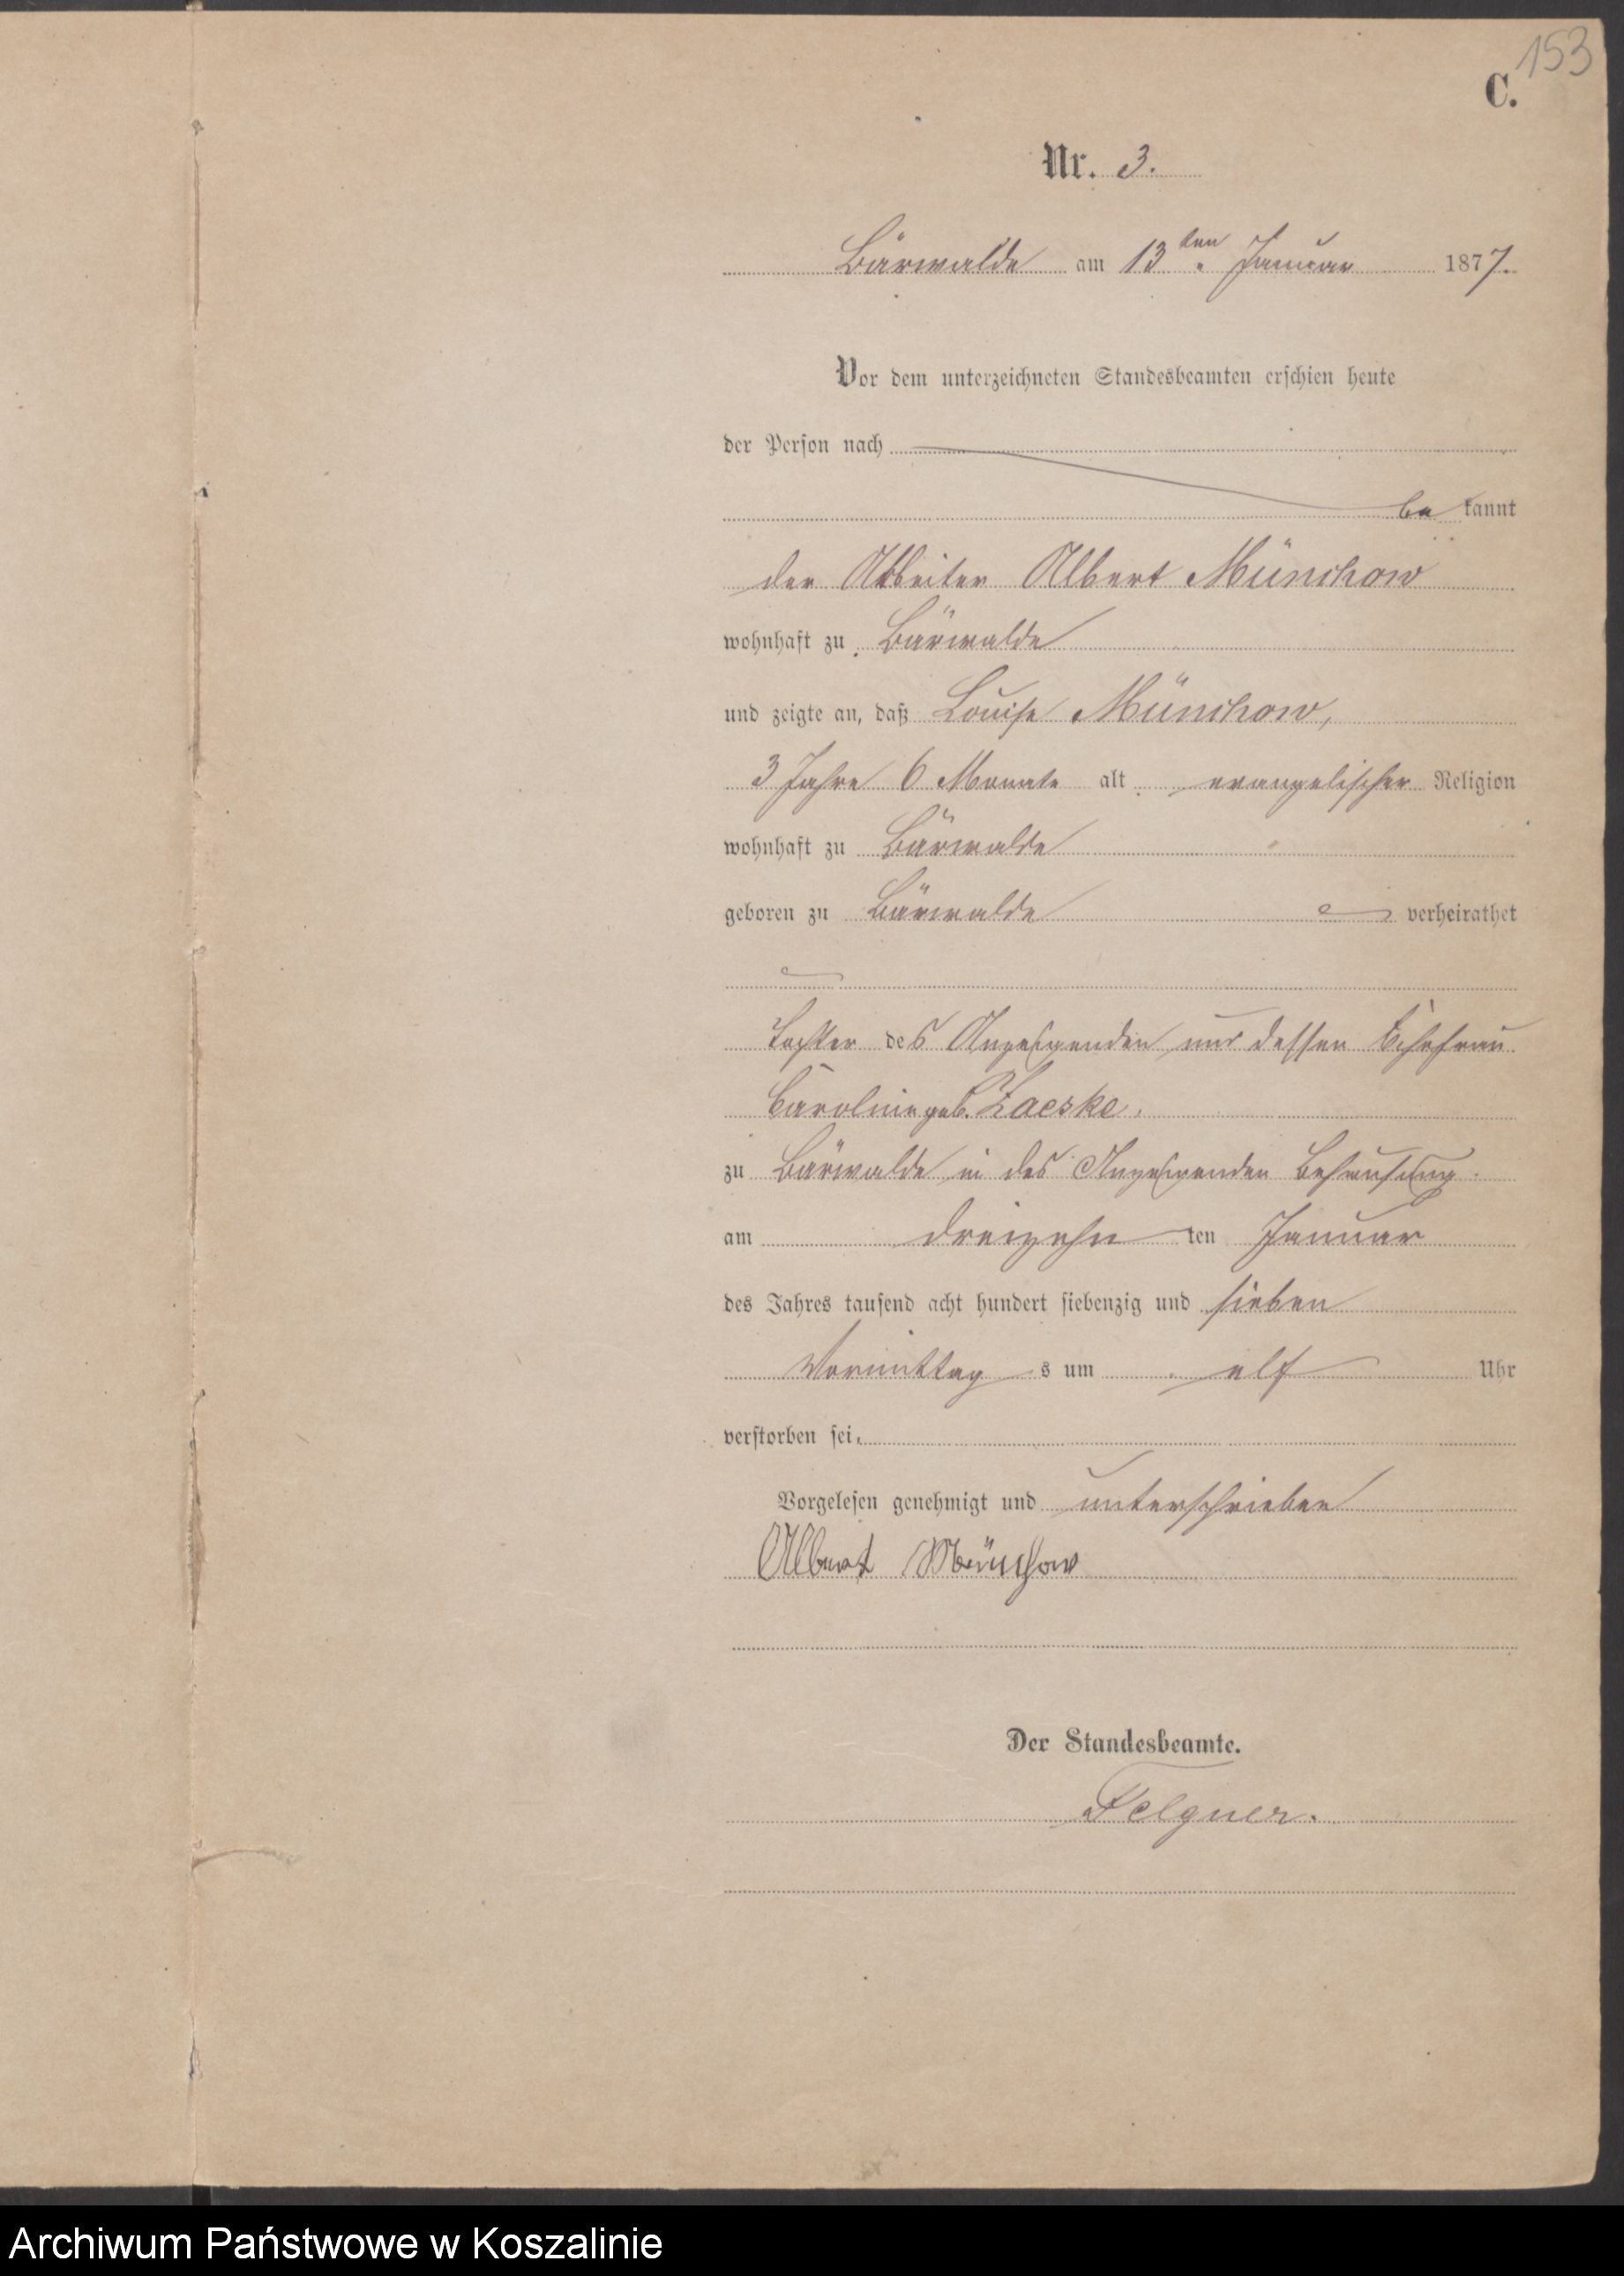 153
C.
Nr. 3.
Bärwalde am 13ten Januar 1877.
Vor dem unterzeichneten Standesbeamten erschien heute
der Person nach
be kannt
der Arbeiter Albert Münchow
wohnhaft zu Bärwalde
und zeigte an, daß Louise Münchow,
3 Jahre 6 Monate alt evangelischer Religion
wohnhaft zu Bärwalde
geboren zu Bärwalde verheirathet
Tochter des Anzeigenden und dessen Ehefrau
Caroline geb. Zaeske.
zu Bärwalde in des Anzeigenden Behausung
am dreizehn ten Januar
des Jahres tausend acht hundert siebenzig und sieben
Vormittag s um elf Uhr
verstorben sei.
Vorgelesen genehmigt und unterschrieben
Albert Münchow
Der Standesbeamte.
Felgner.
Archiwum Państwowe w Koszalinie